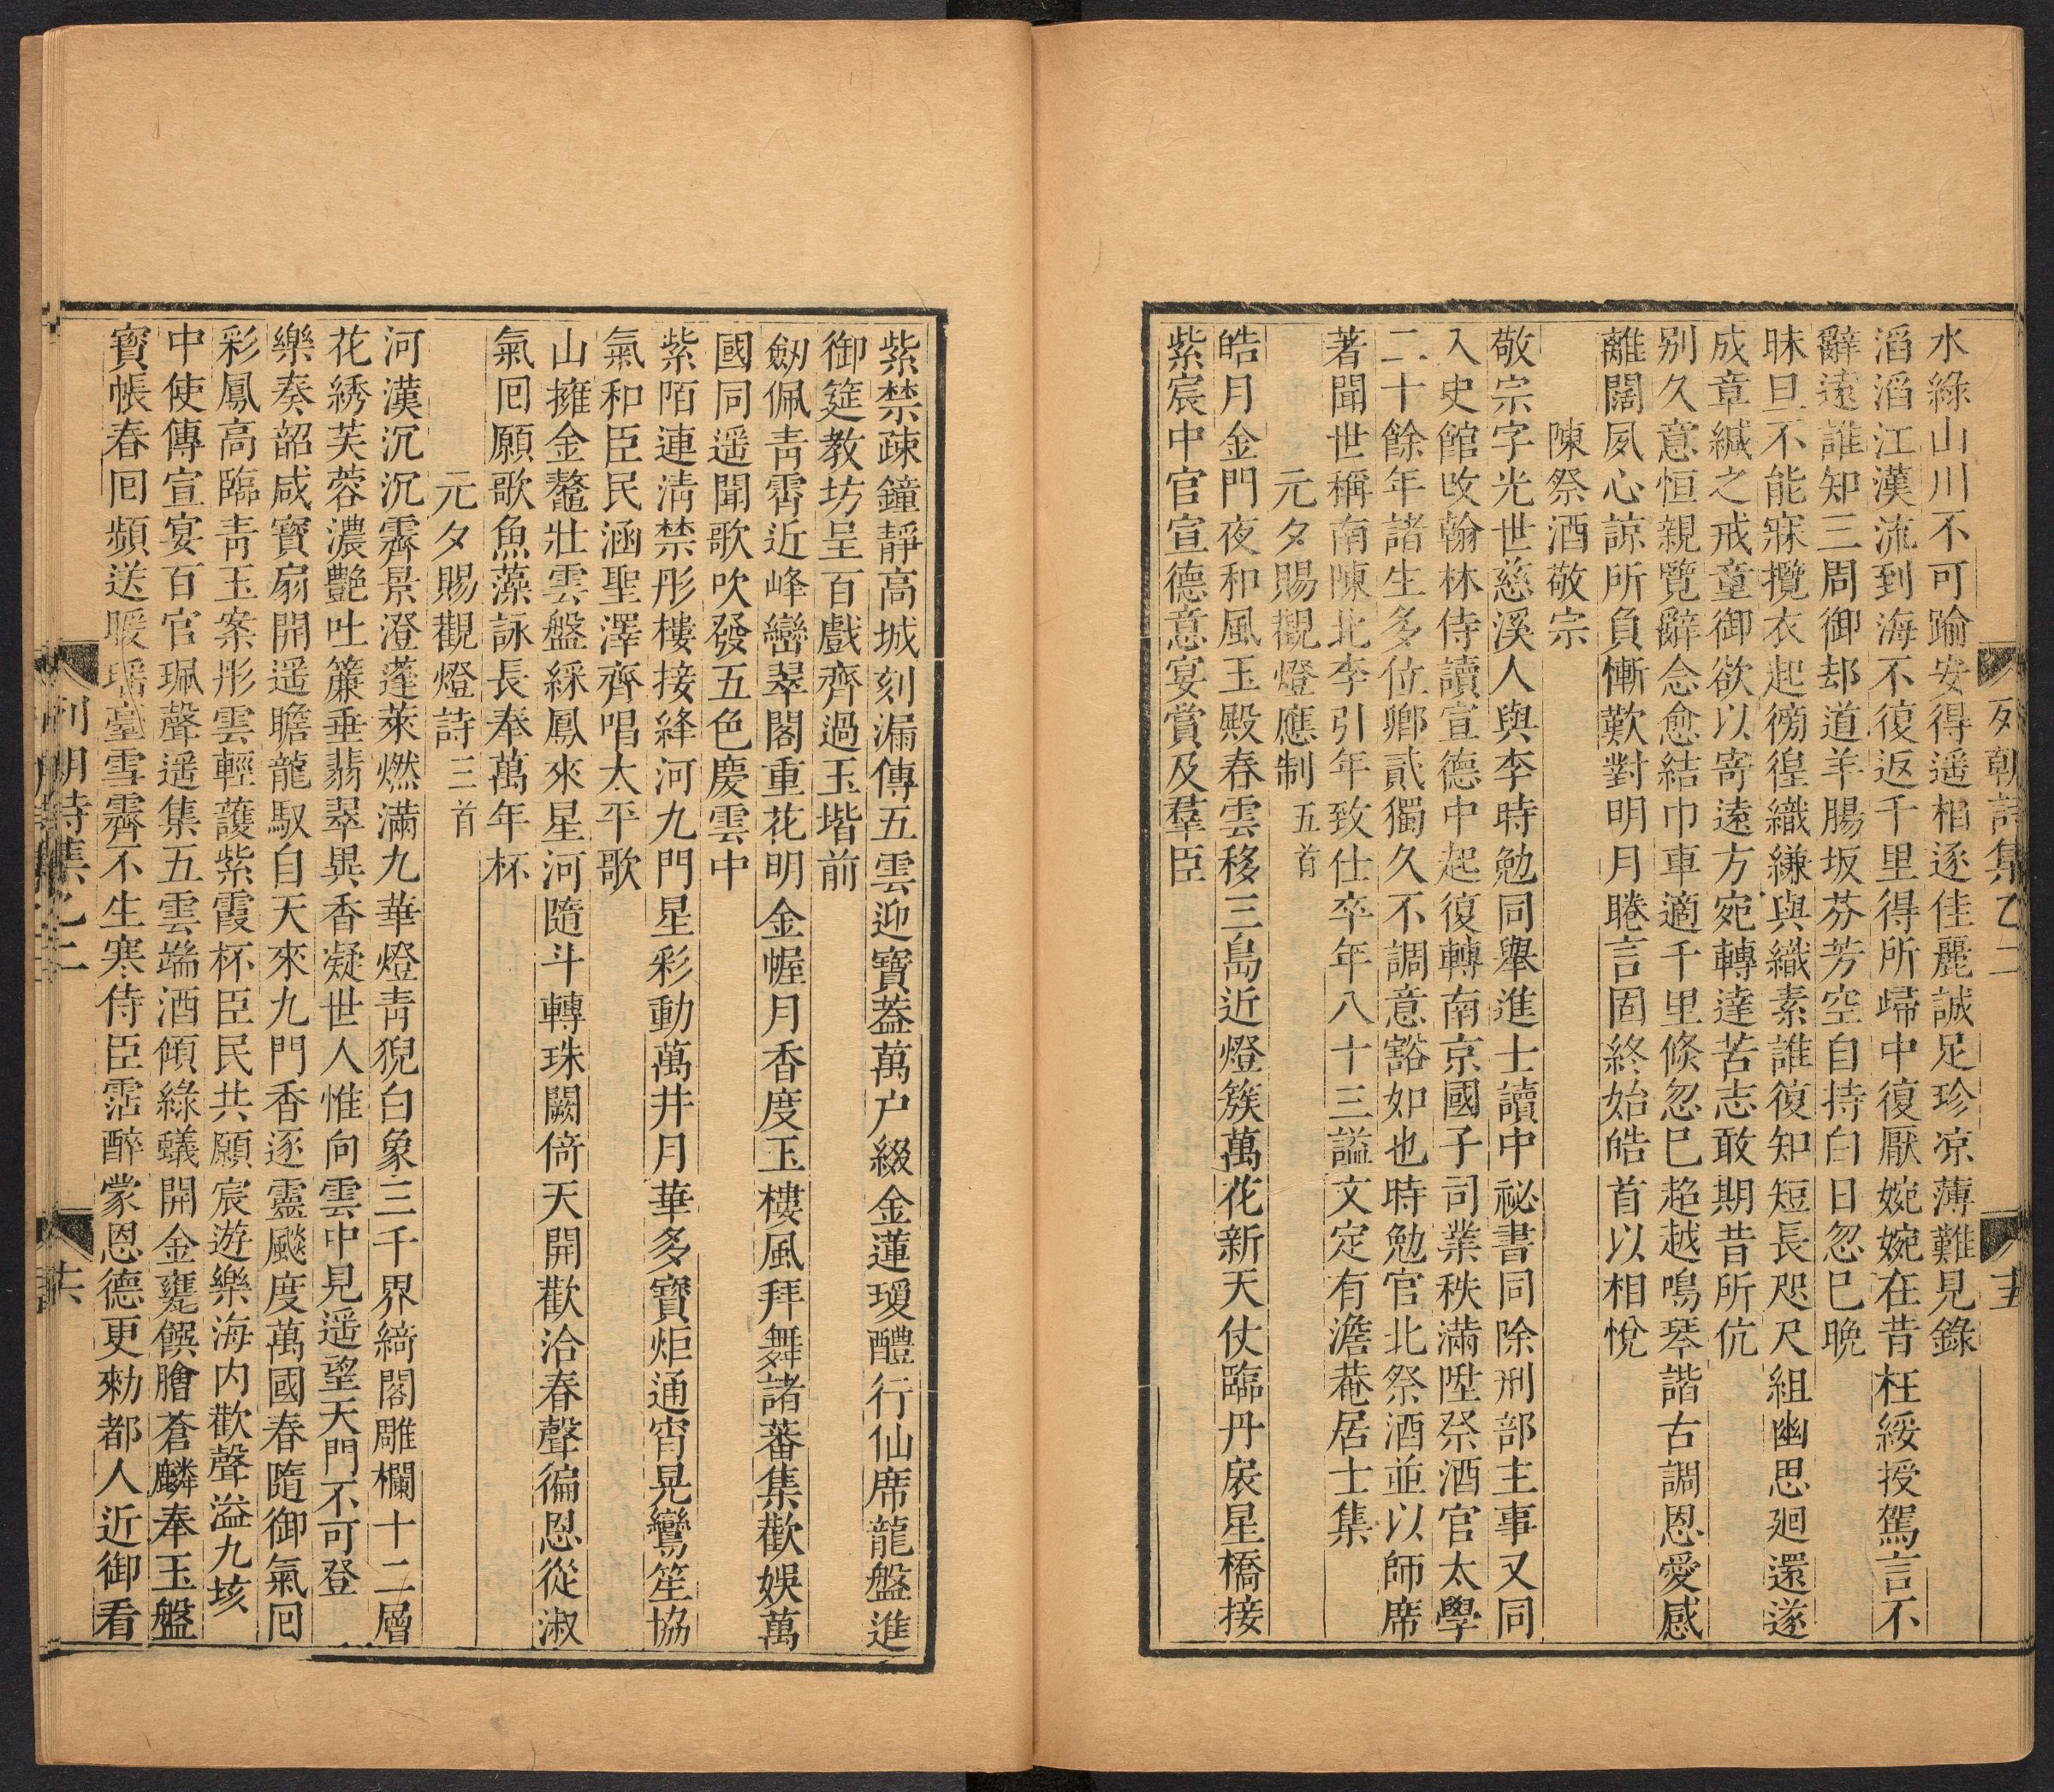 列朝詩集乙二
十五
水綠山川不可踰安得遥相逐佳麗誠足珍凉薄難見錄
滔滔江漢流到海不復返千里得所歸中復厭婉婉在昔枉綏授駕言不
辭遠誰知三周御却道羊腸坂芬芳空自持白日忽巳晚
昧旦不能寐攬衣起徬徨織縑與織素誰復知短長咫尺組幽思廻還遂
成章緘之戒童御欲以寄遠方宛轉達苦志敢期昔所伉
别久意恒親覽辭念愈結巾車適千里倐忽巳超越鳴琴諧古調恩愛感
離闊夙心諒所負慚歎對明月睠言固終始皓首以相悅
陳祭酒敬宗
敬宗字光世慈溪人與李時勉同舉進士讀中祕書同除刑部主事又同
入史館改翰林侍讀宣德中起復轉南京國子司業秩滿陞祭酒官太學
二十餘年諸生多位卿貳獨久不調意豁如也時勉官北祭酒並以師席
著聞世稱南陳北李引年致仕卒年八十三諡文定有澹菴居士集
元夕賜觀燈應制五首
皓月金門夜和風玉殿春雲移三島近燈簇萬花新天仗臨丹扆星橋接
紫宸中官宣德意宴賞及羣臣
紫禁疎鐘靜高城刻漏傳五雲迎寶葢萬户綴金蓮瓊醴行仙席龍盤進
御筵教坊呈百戲齊過玉堦前
劒佩青霄近峰巒翠閣重花明金幄月香度玉樓風拜舞諸蕃集歡娛萬
國同遥聞歌吹發五色慶雲中
紫陌連淸禁彤樓接絳河九門星彩動萬井月華多寶炬通宵晃鸞笙協
氣和臣民涵聖澤齊唱太平歌
山擁金鼇壯雲盤綵鳳來星河隨斗轉珠闕倚天開歡洽春聲徧恩從淑
氣囘願歌魚藻詠長奉萬年杯
元夕賜觀燈詩三首
河漢沉沉霽景澄蓬萊燃滿九華燈青猊白象三千界綺閣雕欄十二層
花綉芙蓉濃艷吐簾垂翡翠異香凝世人惟向雲中見遥望天門不可登
樂奏韶咸寶扇開遥瞻龍馭自天來九門香逐靈飈度萬國春隨御氣囘
彩鳳高臨青玉案彤雲輕護紫霞杯臣民共願宸遊樂海内歡聲溢九垓
中使傳宣宴百官珮聲遥集五雲端酒傾綠蟻開金甕饌膾蒼麟奉玉盤
寶帳春囘頻送暖瑶臺雪霽不生寒侍臣霑醉蒙恩德更勑都人近御看
列朝詩集乙二
十六